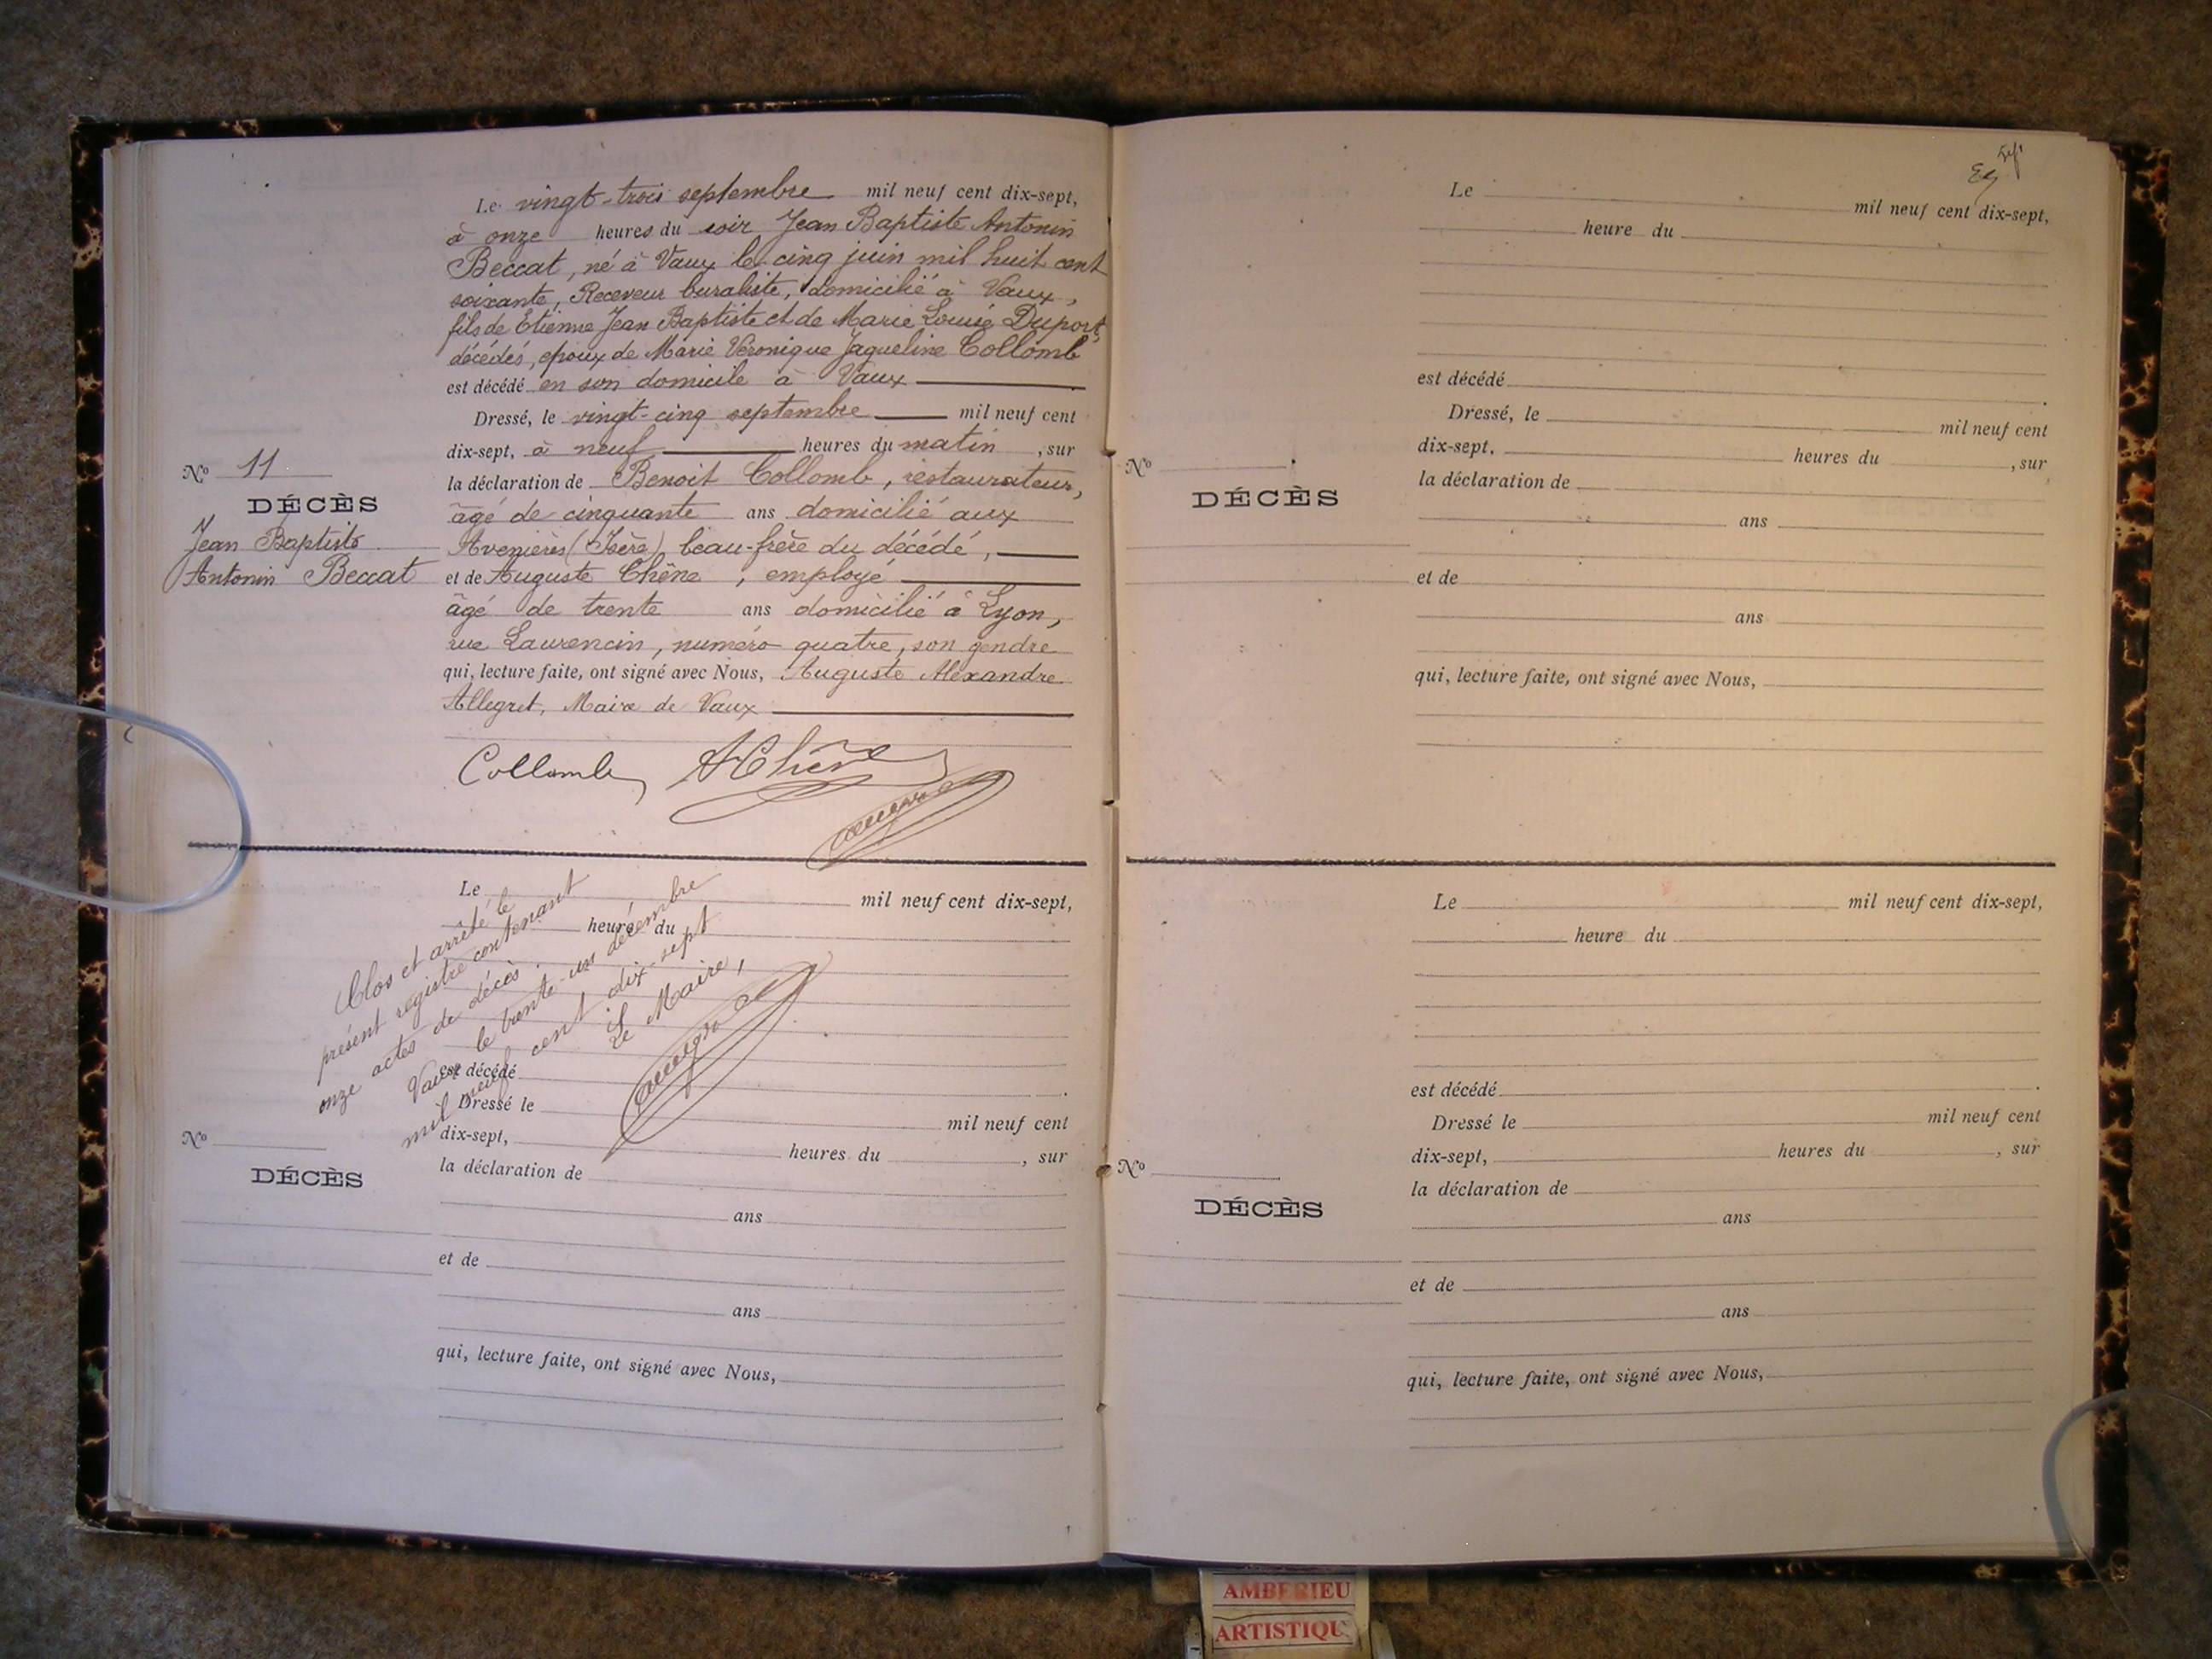 Le vingt-trois septembre mil neuf cent dix-sept,
à onze heures du soir Jean Baptiste Antonin
Beccat, né à Vaux le cinq juin mil huit cent
soixante, Receveur buraliste, domicilié à Vaux,
fils de Etienne Jean Baptiste et de Marie Louise Duport,
décédés, époux de Marie Véronique Jaqueline Collomb
est décédé en son domicile à Vaux
Dressé, le vingt-cinq septembre mil neuf cent
dix-sept, à neuf heures du matin, sur
la déclaration de Benoit Collomb, restaurateur,
âgé de cinquante ans domicilié aux
Avenières (Isère) beau-frère du décédé,
et de Auguste Chêne, employé
âgé de trente ans domicilié à Lyon,
rue Laurencin, numéro quatre, son gendre
qui, lecture faite, ont signé avec Nous, Auguste Alexandre
Allegret, Maire de Vaux
Collomb AChêne
Nº 11
DÉCÈS
Jean Baptiste
Antonin Beccat
Le mil neuf cent dix-sept,
heure du
est décédé
Dressé le mil neuf cent
dix-sept, heures du , sur
la déclaration de
ans
et de
ans
qui, lecture faite, ont signé avec Nous,
Clos et arrêté le
présent registre contenant
onze actes de décès.
Vaux le trente-un décembre
mil neuf cent dix-sept
Le Maire,
Nº
DÉCÈS
Le mil neuf cent dix-sept,
heure du
est décédé .
Dressé, le mil neuf cent
dix-sept, heures du , sur
la déclaration de
ans
et de
ans
qui, lecture faite, ont signé avec Nous,
Nº
DÉCÈS
Le mil neuf cent dix-sept,
heure du
est décédé .
Dressé le mil neuf cent
dix-sept, heures du , sur
la déclaration de
ans
et de
ans
qui, lecture faite, ont signé avec Nous,
Nº
DÉCÈS
AMBERIEU
ARTISTIQU